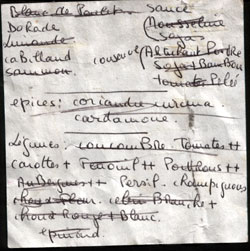 Blanc de Poulet Sauce
Dorade Mousseline
Limande Soyas
cabilland conserve Alterhant Poudre
saummon Soja + Bambou
Tomates Pelée
epices: coriandre curcuma
cardamone.
Légumes: concombre. Tomates ++
carottes + Fenouil ++ Poivrons ++
Aubergines ++ Persil. champignons
choux fleur. celeri Blanche +
choux Rouge + Blanc.
epinard